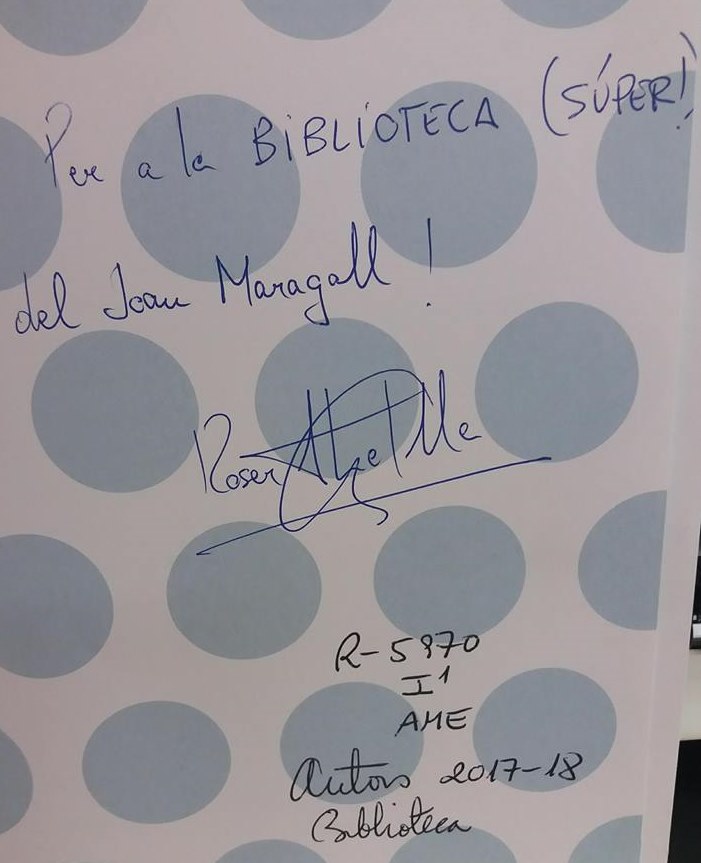 Per a la BIBLIOTECA (SÚPER!)
del Joan Maragall!
Roser
R-5970
I1
AME
Autors 2017-18
Biblioteca